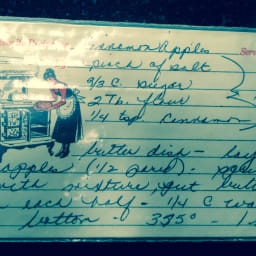 Cinnamon Apples
pinch of salt
2/3 C. Sugar
2 Tb. flour
1/4 tsp Cinnamon
butter dish - lay
apples (1/2 pared) -
with mixture, put butter
in each half - 1/4 C wa
bottom - 325° - 1